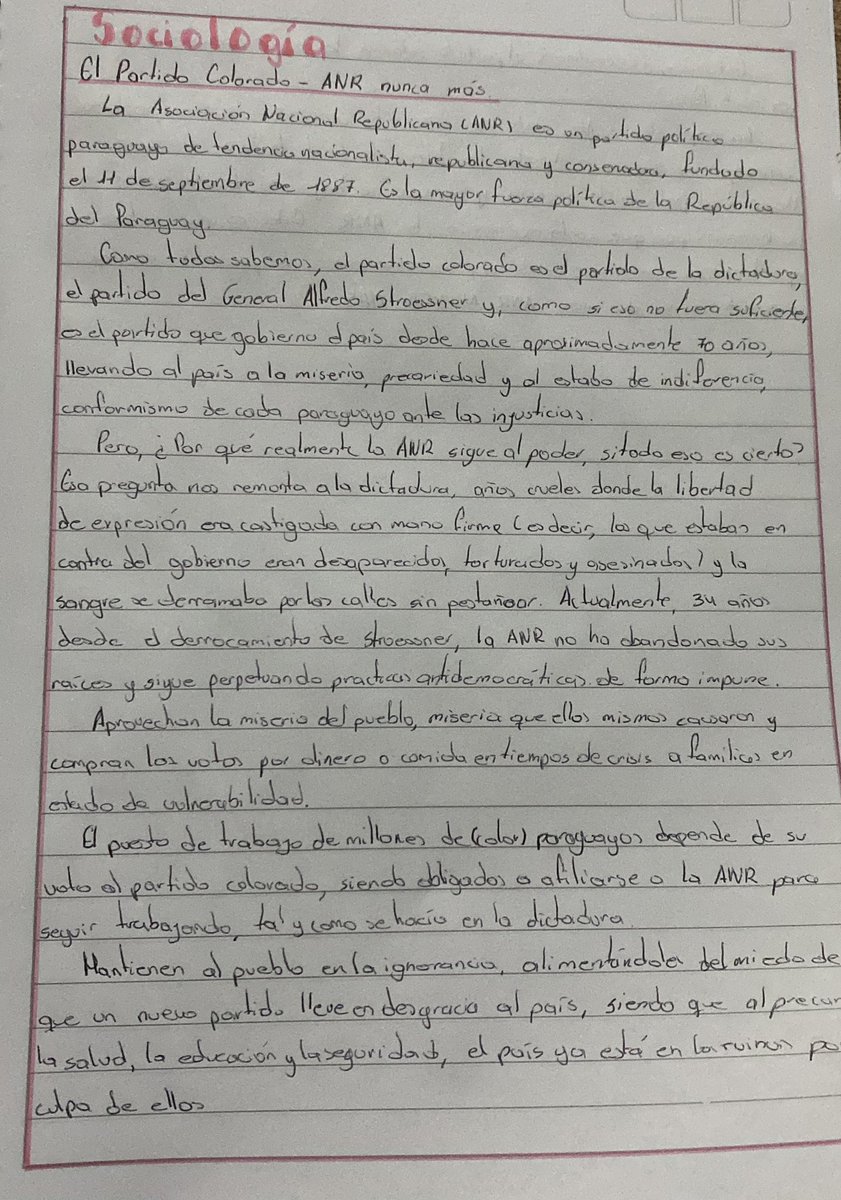 Sociología
El Partido Colorado - ANR nunca más.
La Asociación Nacional Republicana (ANR) es un partido político
paraguayo de tendencia nacionalista, republicana y conservadora, fundado
el 11 de septiembre de 1887. Es la mayor fuerza política de la República
del Paraguay.
Como todos sabemos, el partido colorado es el partido de la dictadura,
el partido del General Alfredo Stroessner y, como si eso no fuera suficiente,
es el partido que gobierna el país desde hace aproximadamente 70 años,
llevando al país a la miseria, precariedad y al estabo de indiferencia,
conformismo de cada paraguayo ante las injusticias.
Pero, ¿Por qué realmente la ANR sigue al poder, si todo eso es cierto?
Esa pregunta nos remonta a la dictadura, años crueles donde la libertad
de expresión era castigada con mano firme (es decir, los que estaban en
contra del gobierno eran desaparecidos, torturados y asesinados) y la
sangre se derramaba por las calles sin pestañear. Actualmente, 34 años
desde el derrocamiento de Stroessner, la ANR no ha abandonado sus
raíces y sigue perpetuando practicas antidemocráticas de forma impune.
Aprovechan la miseria del pueblo, miseria que ellos mismos causaron y
compran los votos por dinero o comida en tiempos de crisis a familias en
estado de vulnerabilidad.
El puesto de trabajo de millones de (dolor) paraguayos depende de su
voto al partido colorado, siendo obligados a afiliarse a la ANR para
seguir trabajando, tal y como se hacía en la dictadura.
Mantienen al pueblo en la ignorancia, alimentándolos del miedo de
que un nuevo partido lleve en desgracia al país, siendo que al precar
la salud, la educación y la seguridad, el país ya está en la ruinas po
culpa de ellos